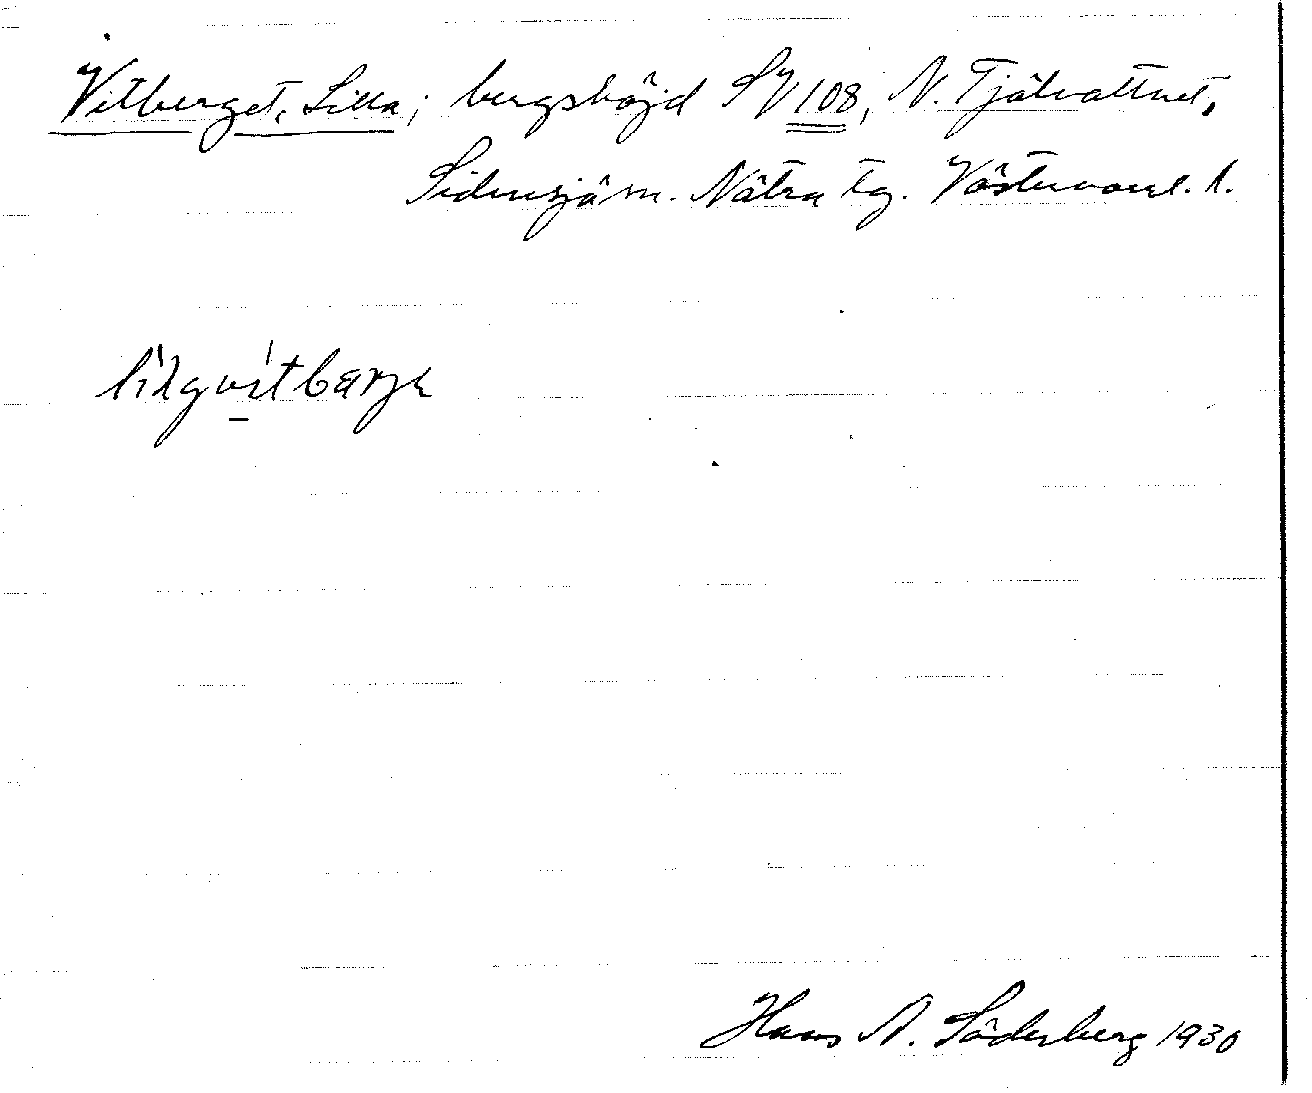 Vitberget, Lilla; bergshöjd SV 108, N. Tjälvattnet,
Sidensjö sn. Nätra tg. Västernorrl. l.
lilgvitbærje
Hans A. Söderberg 1930